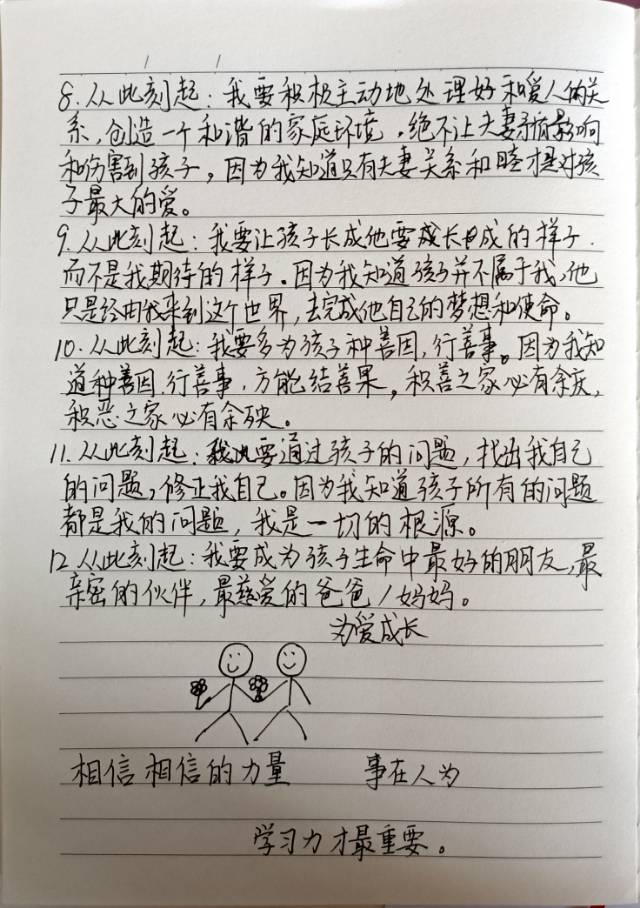 8.从此刻起：我要积极主动地处理好和爱人的关
系,创造一个和谐的家庭环境,绝不让夫妻矛盾影响
和伤害到孩子，因为我知道只有夫妻关系和睦才是对孩
子最大的爱。
9.从此刻起：我要让孩子长成他要成长成的样子.
而不是我期待的样子.因为我知道孩子并不属于我,他
只是经由我来到这个世界,去完成他自己的梦想和使命。
10.从此刻起：我要多为孩子种善因,行善事。因为我知
道种善因.行善事,方能结善果,积善之家必有余庆,
积恶之家必有余殃。
11.从此刻起：我要通过孩子的问题,找出我自己
的问题,修正我自己。因为我知道孩子所有的问题
都是我的问题,我是一切的根源。
12.从此刻起：我要成为孩子生命中最好的朋友,最
亲密的伙伴,最慈爱的爸爸/妈妈。
为爱成长
相信相信的力量 事在人为
学习力才最重要。